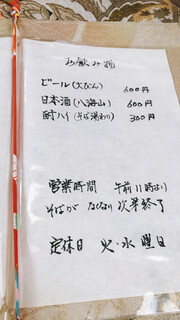 お飲み物
ビール(大びん) 600円
日本酒(八海山) 600円
酎ハイ(そば湯わり) 300円
営業時間 午前11時より
そばが なくなり次第終了
定休日 火・水曜日